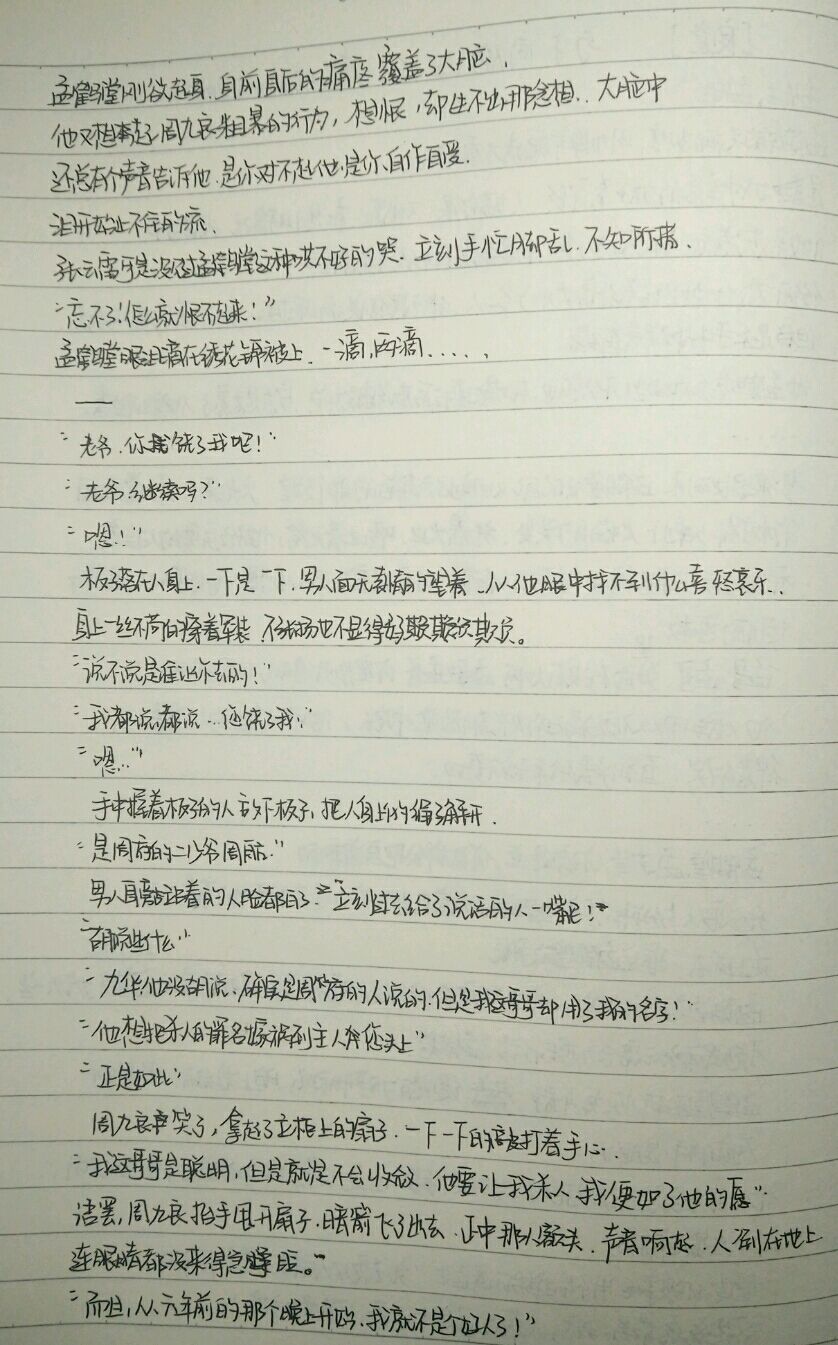 孟鹤堂刚欲起身,身前身后的疼痛疼覆盖了大脑,
他又想起周九良粗暴的行为,想恨,却生不出那念想.大脑中
还总有个声音告诉他,是你对不起他,是你自作自受.
泪开始止不住的流.
张云雷可是没见过孟鹤堂这种哄不好的哭.立刻手忙脚乱.不知所措.
“忘不了!怎么就恨不起来!”
孟鹤堂眼泪滴在绣花锦被上.一滴,两滴......
——
“老爷.你饶了我吧!”
“老爷.继续吗?”
“嗯!”
板子落在人身上.一下是一下.男人面无表情的望着.从他眼中找不到什么喜怒哀乐..
身上一丝不苟的穿着军装.
“说不说是谁让你去的!”
“我都说,都说...您饶了我!”
“嗯..”
手中握着板子的人放下板子,把人身上的绳子解开.
“是周府的二少爷周九良.”
男人身旁站着的人脸都白了.立刻过去给了说话的人一嘴巴!
“胡说些什么”
“九华,他没胡说.确实是周府的人说的.但是我这哥哥却用了我的名字!”
“他想把杀人的罪名嫁祸到主人您头上”
“正是如此”
周九良笑了,拿起了立柜上的扇子.一下一下的敲打着手心.
“我这哥哥是聪明,但是就是不会收敛.他要让我杀人.我便如了他的愿”
话罢,周九良抬手甩开扇子.暗箭飞了出去.正中那人额头.声音响起.人倒在地上
连眼睛都没来得急闭.
“而且,从六年前的那个晚上开始.我就不是个好人了!”